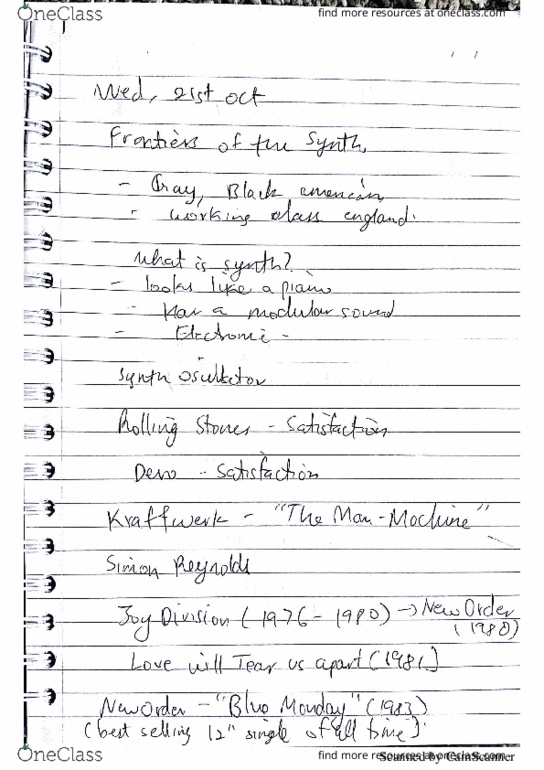 OneClass
find more resources at oneclass.com
Wed, 21st oct
Frontiers of the Synth,
- Gray, Black american
- working class england.
What is synth?
- looks like a piano
- Has a modular sound
- Electronic -
Synth oscillator
Rolling Stones - Satisfaction
Devo - Satisfaction
Kraftwerk - "The Man-Machine"
Simon Reynolds
Joy Division (1976 - 1980) → New Order
(1980)
Love will Tear us apart (1981)
New Order - "Blue Monday" (1983)
(best selling 12" single of all time)
OneClass
find more resources at oneclass.com
Scanned by CamScanner